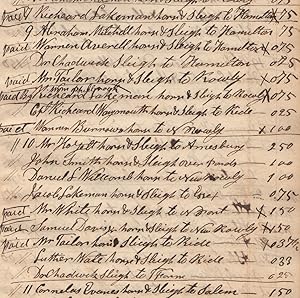 paid Richard Lakeman horse & Sleigh to Hamilton x 75
9 Abraham Mitchell horse & Sleigh to Hamilton 75
paid Warren Averell horse & Sleigh to Hamilton x 075
Dr Chadwick Sleigh to Hamilton 025
paid Mr Tailor horse & Sleigh to Rowly x 075
paid By Richard Lakeman horse & Sleigh to Rowly x 075
Cpt Richard Waymouth horse & Sleigh to Ride 025
paid Warren Burnews horse to N Rowly x 100
11 10 Mr Hoyatt horse & Sleigh to Amesbury 250
John Smith horse & Sleigh over 100
Daniel S Willcomb horse to New Rowly 100
Jacob Lakeman horse & Sleigh to Esex 075
paid Mr White horse & Sleigh to N Port x 150
paid Samuel horse & Sleigh to New Rowly x 150
paid Mr Tailor horse & Sleigh to Ride x 03
Luther Wate horse & Sleigh to Ride 033
Dr Chadwick Sleigh to Farm 025
11 Cornelas horse & Sleigh to Salem 150